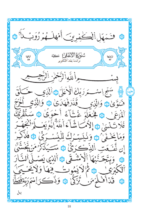 فَمَهِّلِ ٱلْكَٰفِرِينَ أَمْهِلْهُمْ رُوَيْدًۢا
سُورَةُ الأَعْلَىٰ
بِسْمِ ٱللَّهِ ٱلرَّحْمَٰنِ ٱلرَّحِيمِ
سَبِّحِ ٱسْمَ رَبِّكَ ٱلْأَعْلَى ٱلَّذِى خَلَقَ
فَسَوَّىٰ وَٱلَّذِى قَدَّرَ فَهَدَىٰ وَٱلَّذِىٓ أَخْرَجَ
ٱلْمَرْعَىٰ فَجَعَلَهُۥ غُثَآءً أَحْوَىٰ سَنُقْرِئُكَ
فَلَا تَنسَىٰٓ إِلَّا مَا شَآءَ ٱللَّهُ إِنَّهُۥ يَعْلَمُ ٱلْجَهْرَ
وَمَا يَخْفَىٰ وَنُيَسِّرُكَ لِلْيُسْرَىٰ فَذَكِّرْ
إِن نَّفَعَتِ ٱلذِّكْرَىٰ سَيَذَّكَّرُ مَن يَخْشَىٰ
وَيَتَجَنَّبُهَا ٱلْأَشْقَى ٱلَّذِى يَصْلَى ٱلنَّارَ
ٱلْكُبْرَىٰ ثُمَّ لَا يَمُوتُ فِيهَا وَلَا يَحْيَىٰ
قَدْ أَفْلَحَ مَن تَزَكَّىٰ وَذَكَرَ ٱسْمَ رَبِّهِۦ